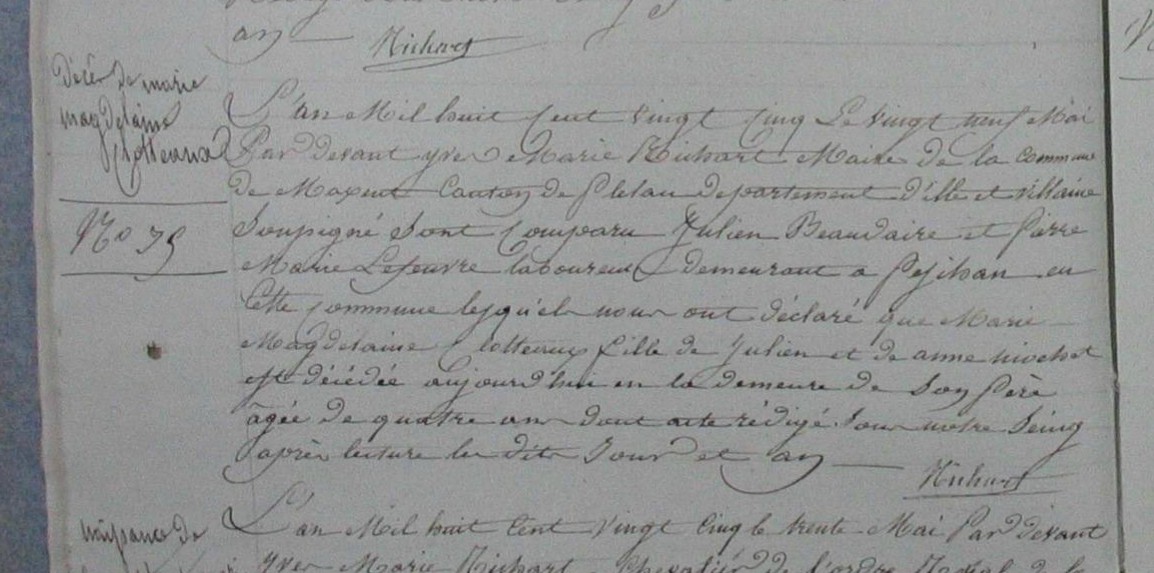 an Richart
Décès de marie
magdelaine
Clotteaux
No 75
L'an Mil huit Cent vingt Cinq Le vingt neuf Mai
Par devant yves Marie Richart Maire de la commune
de Maxent Canton de Plelan departement d'ille et villaine
Soupigné Sont Comparu Julien Beaudaire et Pierre
Marie Lefeuvre laboureurs demeurant a en
Cette commune lesquels nous ont déclaré que Marie
Magdelaine Clotteaux fille de Julien et de anne
est décédée aujourd'hui en la demeure de Son Père
âgée de quatre ans dont acte rédigé Sous notre Seing
après lecture les dits Jour et an
Richart
naissance de
L'an Mil huit Cent vingt Cinq le trente Mai Par devant
Yves Marie Richart Chevalier de l'ordre Royal de la